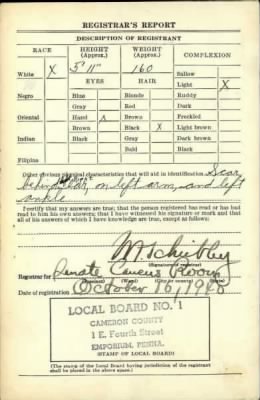 REGISTRAR'S REPORT
DESCRIPTION OF REGISTRANT
RACE HEIGHT (Approx.) WEIGHT (Approx.) COMPLEXION
5' 11" 160
EYES HAIR
White X
Sallow
Light X
Negro Blue Blonde Ruddy
Gray Red Dark
Oriental Hazel Brown Freckled
Brown Black X Light brown
Indian Black Gray Dark brown
Bald Black
Filipino
Other obvious physical characteristics that will aid in identification Scar
behind ear, on left arm, and left
ankle
I certify that my answers are true; that the person registered has read or has had
read to him his own answers; that I have witnessed his signature or mark and that
all of his answers of which I have knowledge are true, except as follows:
(Signature of registrar)
Registrar for
(Precinct) (Ward) (City or county) (State)
Date of registration October 16, 1940
LOCAL BOARD NO. 1
CAMERON COUNTY
1 E. Fourth Street
EMPORIUM, PENNA.
(STAMP OF LOCAL BOARD)
(The stamp of the Local Board having jurisdiction of the registrant
shall be placed in the above space.)